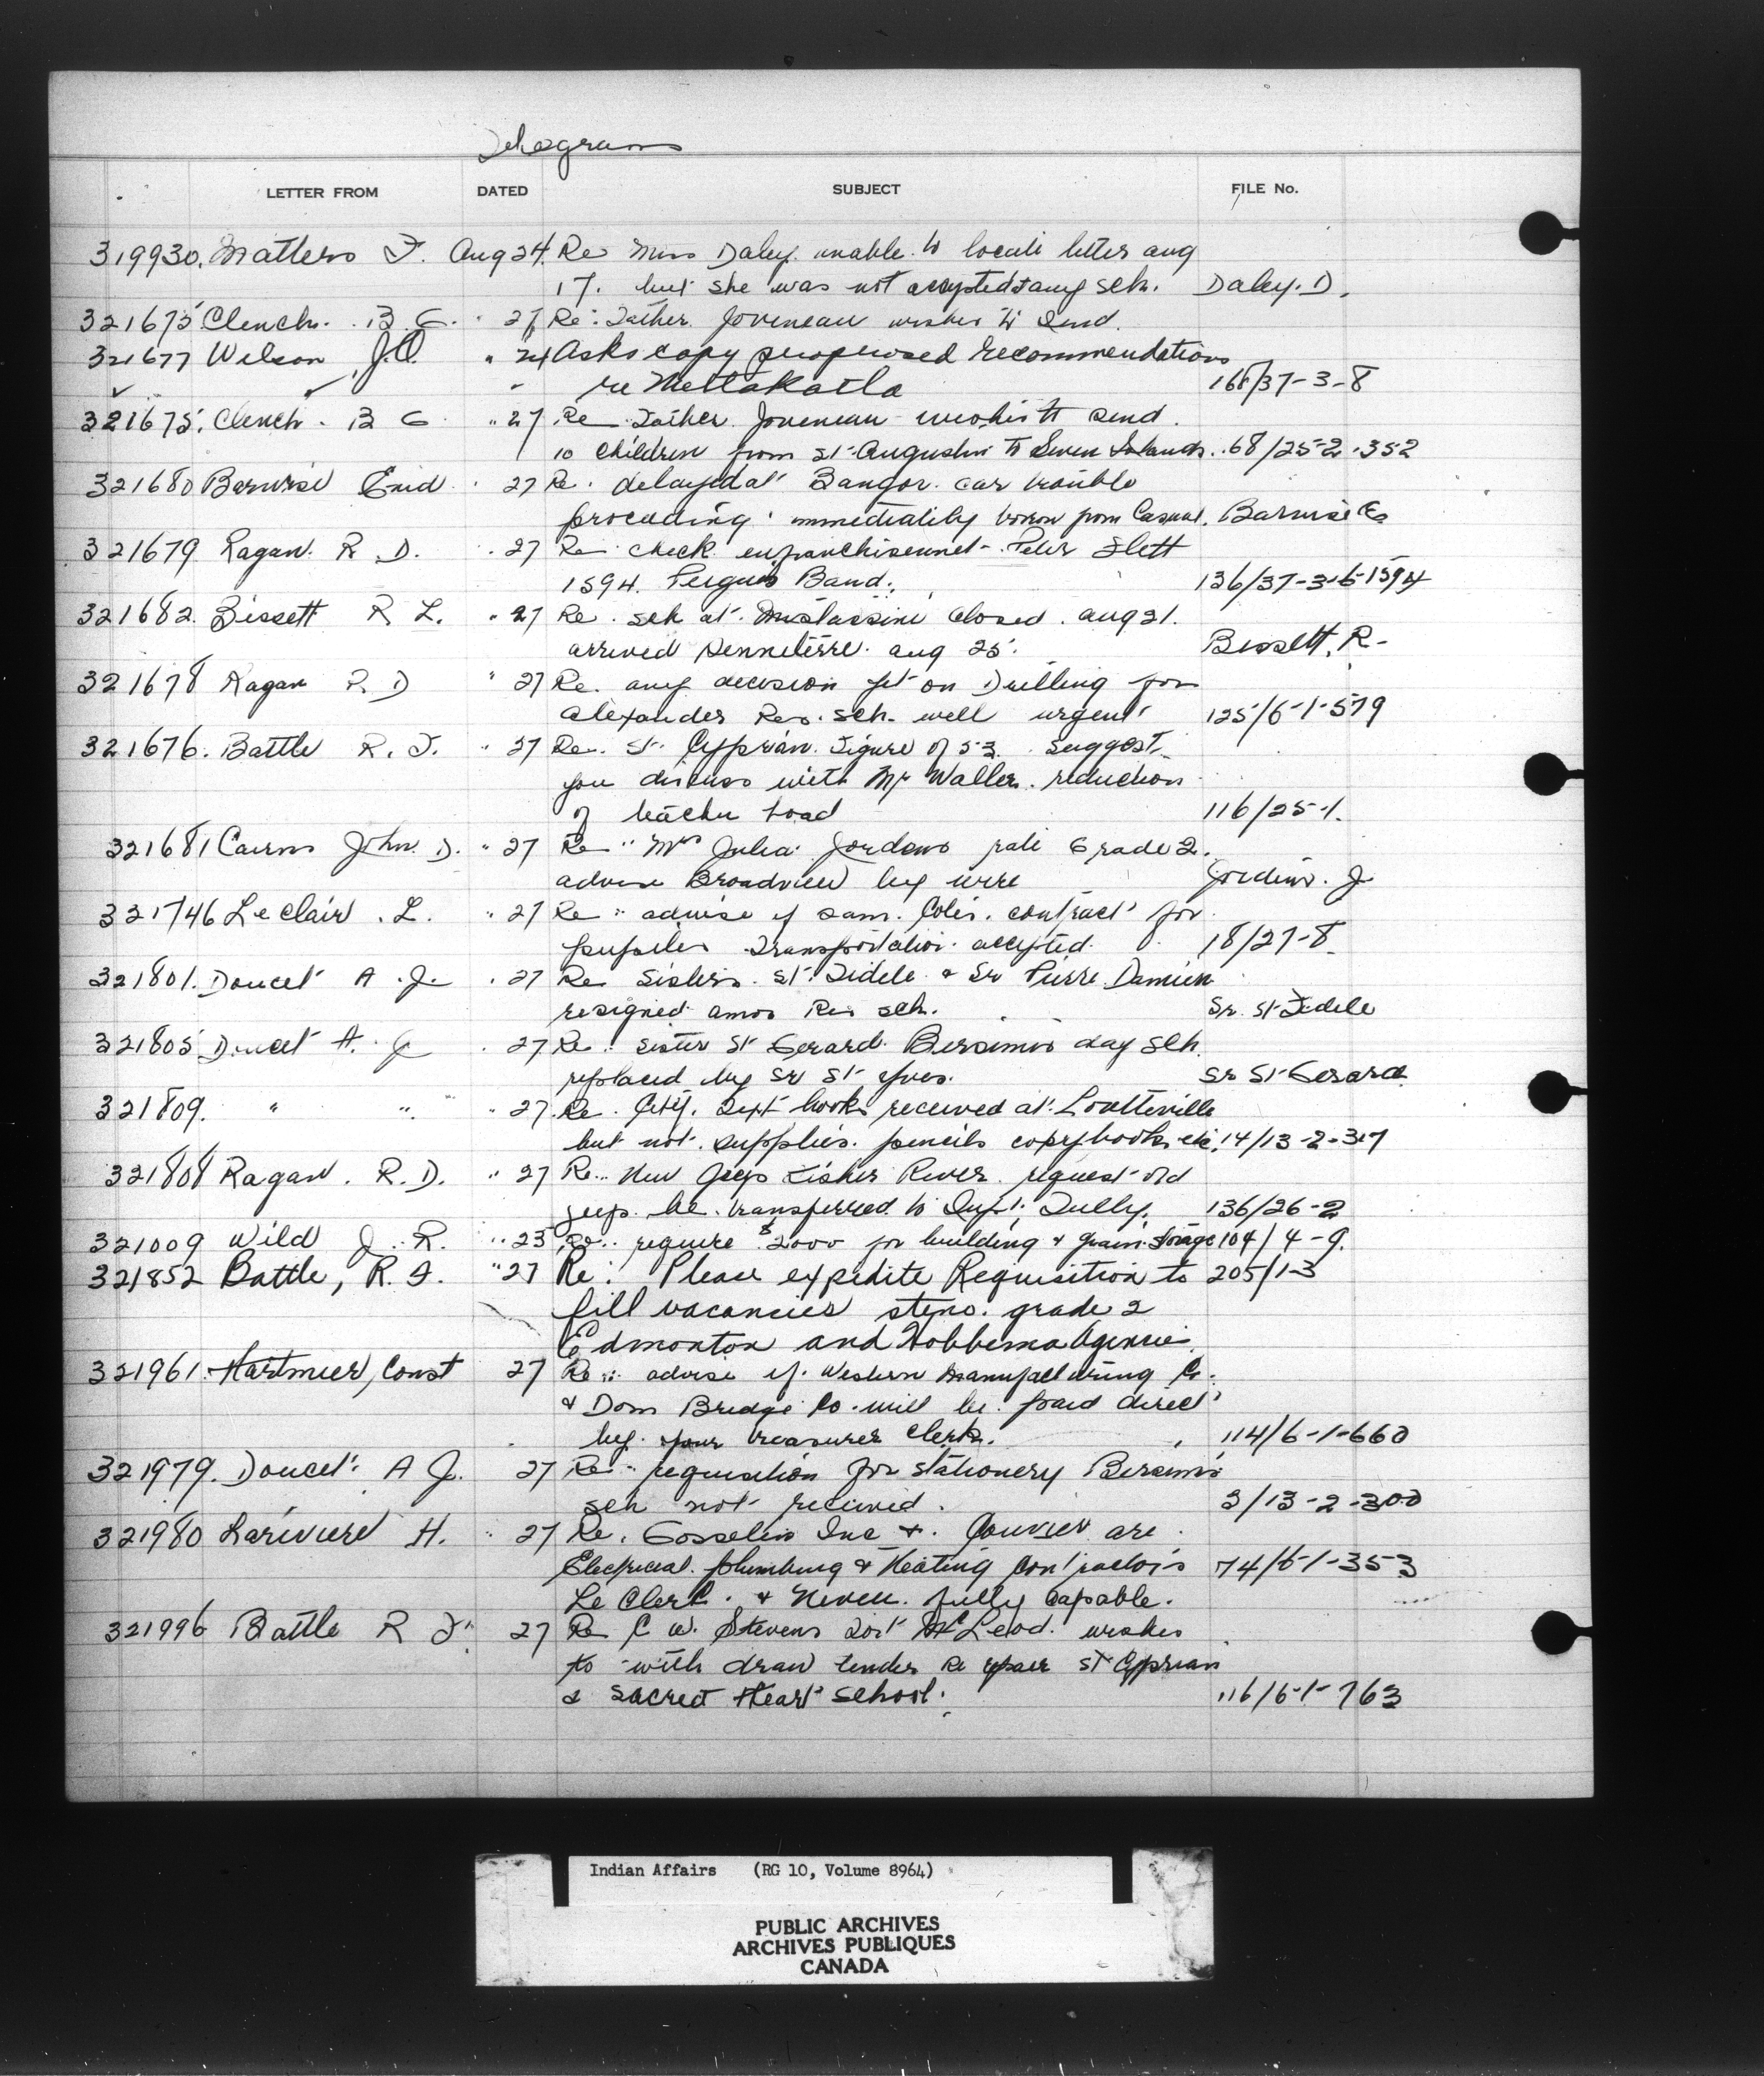 Telegrams
LETTER FROM DATED SUBJECT FILE No.
319930. Matters F. Aug 24. Re Miss Daley unable to locate letter aug
17. but she was not accepted Jany sch. Daley. D.
321675 Clench. B G. " 27 Re: Father Joveneau wishes to send
321677 Wilson, J.O. " 24 Asks copy proposed recommendations
re Metlakatla 168/37-3-8
321675. Clench. B G " 27 Re Father Joveneau wishes to send
10 children from St. Augustin to Seven Islands. 68/25-2-352
321680 Barwise Enid " 27 Re. delayed at Bangor. car trouble
proceeding immediately from Casual. Barwise E
321679 Ragan. R. D. " 27 Re check enfranchisement - Peter Slett
1594. Peguis Band. 136/37-3-6-1594
321682. Bissett R L. " 27 Re. sch at Mistassini closed. aug 21.
arrived Senneterre. aug 25. Bissett, R-
321678 Ragan R D " 27 Re. any decision yet on Drilling for
Alexander Res. sch. well urgent 125/6-1-579
321676. Battle R. F. " 27 Re. St. Cyprian. Figure of 53. Suggest
you discuss with Mr Waller. reduction
of teacher load 116/25-1.
321681 Cairns John. D. " 27 Re " Mrs Julia Jordens rate Grade 2.
advise Broadview by wire Jordens. J
321746 LeClair. L. " 27 Re " advise if Sam. Coles. contract for
pupiles Transportation accepted. 18/27-8
321801. Doucet A. J. " 27 Re Sisters. St. Fidele & Sr Pierre Damien
resigned amos Res sch. Sr. St Fidele
321805 Doucet A. J " 27 Re: Sister St Gerard Bersimis day sch.
replaced by Sr St Yves. Sr St Gerard
321809. " " " 27. Re. Text books received at Loutteville
but not supplies. pencils copybooks etc. 14/13-2-317
321808 Ragan. R. D. " 27 Re. New Jeep Fisher River. request old
jeep be transferred to Supt. Tully. 136/26-2
321009 Wild J. R. " 23 Re. require $2000 for building & grain storage 104/4-9.
321852 Battle, R. F. " 27 Re: Please expedite Requisition to 205/1-3
fill vacancies steno. grade 2
Edmonton and Hobbema Agencies.
321961. Hartmier, Const 27 Re: advise if Western Manufacturing Co.
& Dom Bridge Co. will be paid direct
by your treasurer clerk. 114/6-1-660
321979. Doucet A J. 27 Re " requisition for stationery Bersimis
sch not received. 3/13-2-300
321980 Lariviere H. " 27 Re. Gosselin Inc &. are
Electrical. plumbing & Heating Contractors 74/6-1-353
Le Clerc. & Neveu. fully capable.
321996 Battle R F. 27 Re C W. Stevens Fort McLeod. wishes
to with draw tender re repair St Cyprian
& Sacred Heart School. 116/6-1-763
Indian Affairs (RG 10, Volume 8964)
PUBLIC ARCHIVES
ARCHIVES PUBLIQUES
CANADA